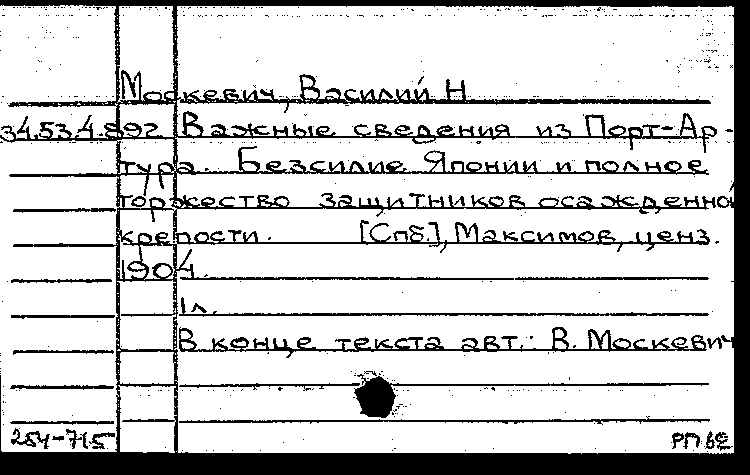 Москевич, Василий Н
34.53.4.892 Важные сведения из Порт-Ар-
тура. Безсилие Японии и полное
торжество защитников осажденной
крепости. [Спб.], Максимов, ценз.
1904.
1л.
В конце текста авт.: В. Москевич
254-715 РП 62